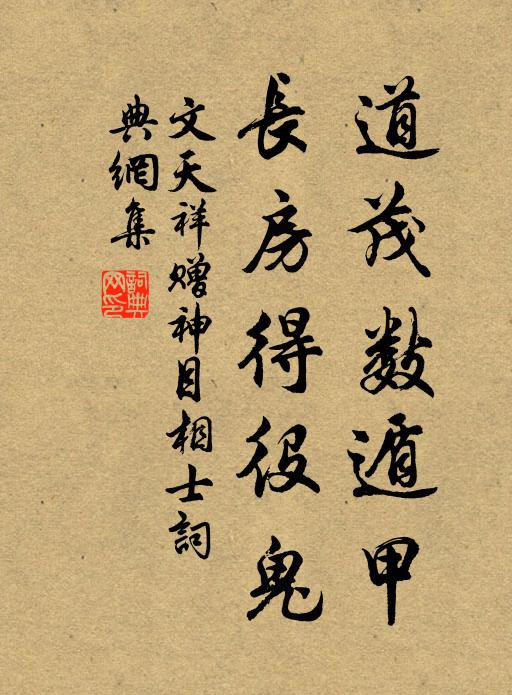 道茂數遁甲
長房得役鬼
文天祥贈神目相士詞
典網集
詞典
网印